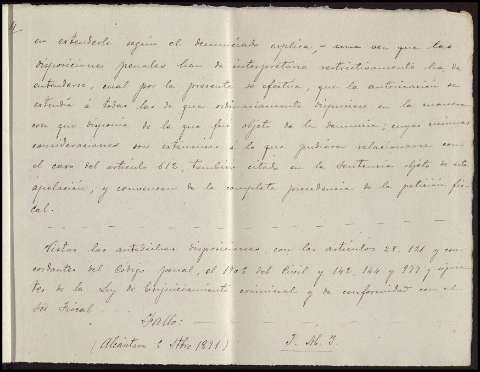 en entenderle según el denunciado explica, – una vez que las
disposiciones penales han de interpretarse restrictivamente ha de
entenderse, cual por la presente se efectua, que la autorizacion se
extendia á todas las de que ordinariamente dispusiese en la manera
con que disponia de la que fué objeto de la denuncia; cuyas mismas
consideraciones son extensivas á lo que pudiera relacionarse con
el caso del artículo 612, tambien citado en la Sentencia objeto de esta
apelación, y convencen de la completa procedencia de la petición fis-
cal.
Vistas las antedichas disposiciones, con los artículos 28, 121 y con-
cordantes del Código penal, el 1902 del Civil y 142, 144 y 977 y
tes de la Ley de Enjuiciamiento criminal y de conformidad con el
Sor Fiscal
Fallo:
(Alcántara 2 Stbre 1891)